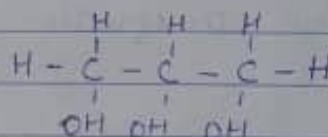 H H H
H - C - C - C - H
OH OH OH